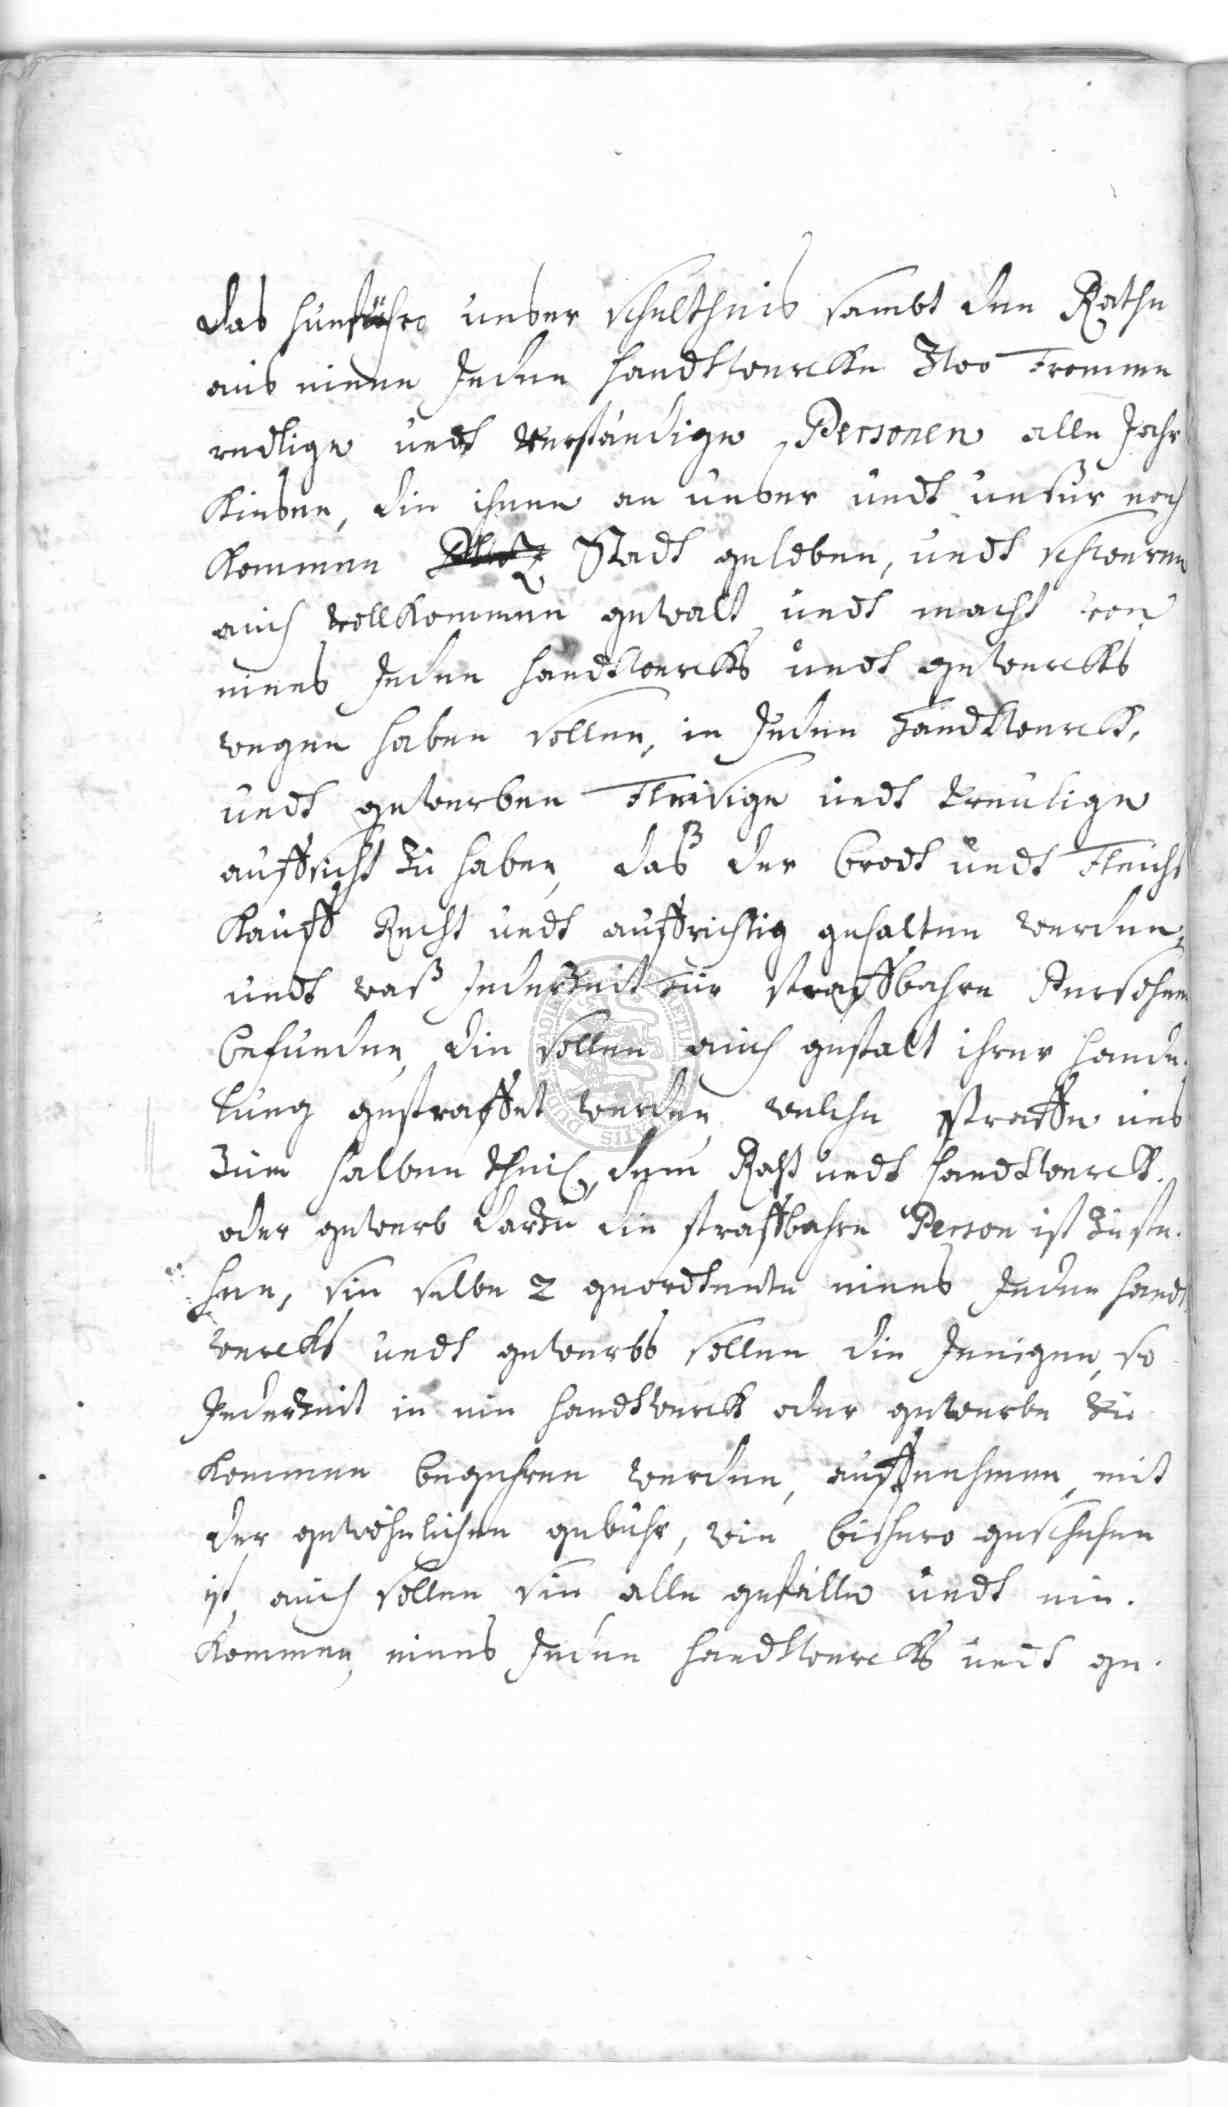 das hunführo unser schultheis sambt den Rathe
aus einen Jeden handtwercke Zwo Fromme
redlige undt verständige Personen alle Jahr
Kiesen, die ihnen an unser undt unsür noch
Kommen Stadt geloben, undt schweren
auch vollkommen gewalt undt macht von
eines Jeden handtwercks undt gewercks
wegen haben sollen, in Jeden handtwerck,
undt gewerben Fleisige undt treulige
auffsicht zu haben, das der brodt undt Fleich
Kauff Recht undt auffrichtig gehalten werden,
undt waß Jederzeit für straffbahre Persohnen
befunden, die sollen auch gestalt ihrer hande.
lung gestraffet werden, welche straffe uns
zum halben theil, dem Raht undt handtwerck.
oder gewerb darzu die straffbahre Person ist zuste.
hen, sie selbe 2 geordtente eines Jeden handt
wercks undt gewerbs sollen die Jenigen, so
Jederzeit in ein handtwerck oder gewerbe zu
kommen begehren werden, auffnehmen, mit
der gewöhnlichen gebühr, wie bishero geschehen
ist, auch sollen sie alle gefälle undt ein.
kommen, eines Jeden handtwercks undt ge.